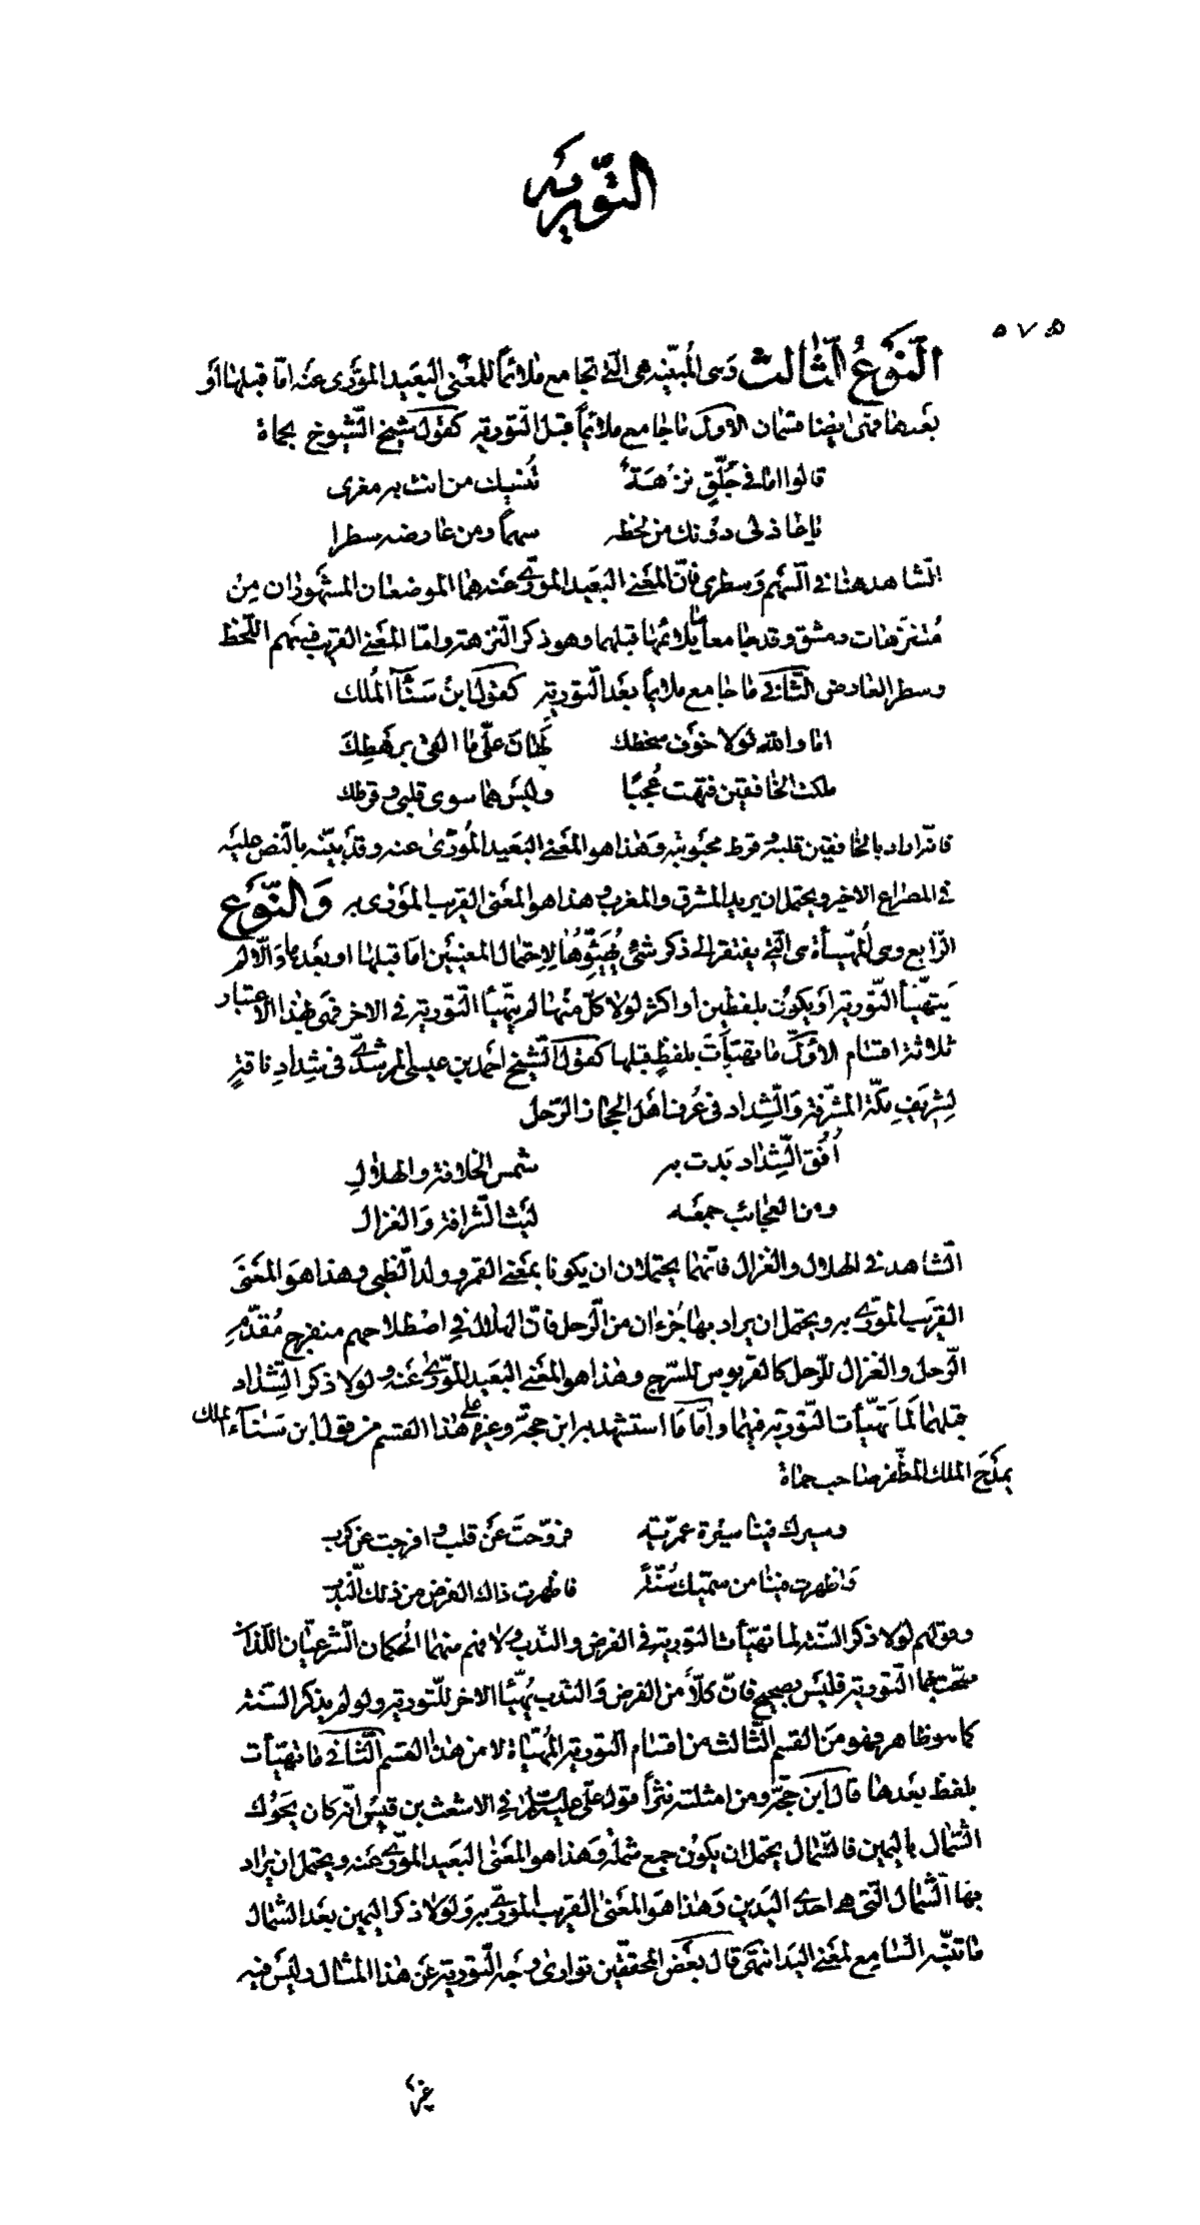 التّورية
٥٧٥
النَّوعُ الثّالث وهى المُبيّنه هى الّتى تجامع ملائماً للمعنى البَعَيد المورّى عنه امّا قبلها او
بَعدها فهى ايضا قسمان الاوّل ما جامع ملائماً قبل التّورية كقول شيخ الشّيوخ بحماة
قالوا اما فى جِلّقٍ نزهَةٌ تُنسِيك من انت به مغرى
يا عاذلى دونك من لحظه سهماً ومن عارضه سطرا
الشّاهد هنا فى السّهم وسطرى فانّ المعَنى البَعَيد المورّى عَنه هما الموضعان المشهوران مِن
مُتنزّهات دمشق وقد جامعا ما يلائمها قبلهما وهو ذكر النّزهة وامّا المعَنى القريب فسَهم اللّحظ
وسطر العارض الثّانى ما جامع ملائماً بعَد التّورية كقول ابن سَنآء المُلك
اما والله لَولا خوَف سخطك لَهانَ علىّ ما القى برهطِكَ
ملكت الخافقين فتهت عُجبًا وليسَ هما سوى قلبى وقرطك
فانّه اراد بالخافقين قلبه وقرط محبَوبته وهَذا هو المعَنى البَعَيد المُورّى عنه وقد بيّنه بالنّص عليَه
فى المصراع الاخير ويحتمل ان يريد المشرق والمغرب وهذا هو المعَنى القريب المورّى به وَالنّوَع
الرّابع وهى المُهيّأة هى الّتى يفتقر الى ذكر شئ يُهَيِّؤُها لِاحتمال المعنيَين امّا قبلها او بعَدها وَالّا لم
يَتهيّأ التّورية او يكون بلفظين او اكثر لولا كلّ منهما لم يتهيّأ التّورية فى الاخر فهى بهذا الاعتبار
ثلاثة اقسَام الاوّل ما تهيّأت بلفظٍ قبلها كقول الشّيخ احمد بن عيسى المرشدى فى شِدادِ ناقةٍ
لِشريَفِ مكّة المشرّفة وَالشِّداد فى عُرف اهَل الحجاز الرّحل
أُفُق الشِّداد بَدت به شمس الخلافة والهلالِ
ومن العجائب جمعَه ليَث الشّرافة وَالغزال
الشّاهد فى الهلال والغزال فانّهما يحتملان ان يكونا بمعَنى القمر وولد الظّبى وهذا هوَ المعَنىَ
القريَب المورّى به ويحتمل ان يراد بهما جُزءان من الرّحل فانّ الهلال فى اصَطلاحهم منفرج مُقدّمِ
الرّحل والغزال للرّحل كالقربوس للسّرج وهذا هو المعَنى البَعَيد المورّى عَنه ولولا ذكر الشِّداد
قبلهما لَما تهَيّأت التّورية فيهما وامّا مَا استشهد به ابن حجة وغيره على هذا القسم من قول ابن سَنآء الملك
بمَدَح الملك المظّفر صاحب حماة
وسيرك فينا سيرة عمريّة فروّحتَ عَن قلب وافرجت عن كرب
وَاظهرت فينا من سميّك سُنّةً فاظهرت ذاك الفرض من ذلك النّدب
وقولهم لولا ذكر السّنّة لما تهيّأت التّورية فى الفرض والنّدب ولا فهم منهما الحُكمان الشّرعيّان اللّذان
صّحت بهما التّورية فليسَ بصحيح فانّ كلّاً من الفرض وَالنّدب يُهيّأ الاخر للتّورية ولو لم يذكر السّنّة
كما هو ظاهر فهو من القسم الثّالث من اقسام التّورية المُهيّاة لا من هذا القسم الثّانى ما تهيّأت
بلفظ بعَدها قال ابن حجّة ومن امثلته نثراً قول علىّ عليه السّلام فى الاشعث بن قيس انّه كان يَحُوك
الشّمال باليمين فالشّمال يحتمل ان يكون جمع شملة وهَذا هو المعَنى البَعَيد المورّى عَنه ويحتمل ان يراد
بها الشّمال الّتى هى احدى اليَدين وهَذا هوَ المعَنى القريب المورّى به ولوَلا ذكر اليمين بعَد الشّمال
ما تنبّه السّامع لمعَنى اليَد انتهى قال بعَض المحققين توارى وجه التّورية عن هذا المثال وليَس فيه